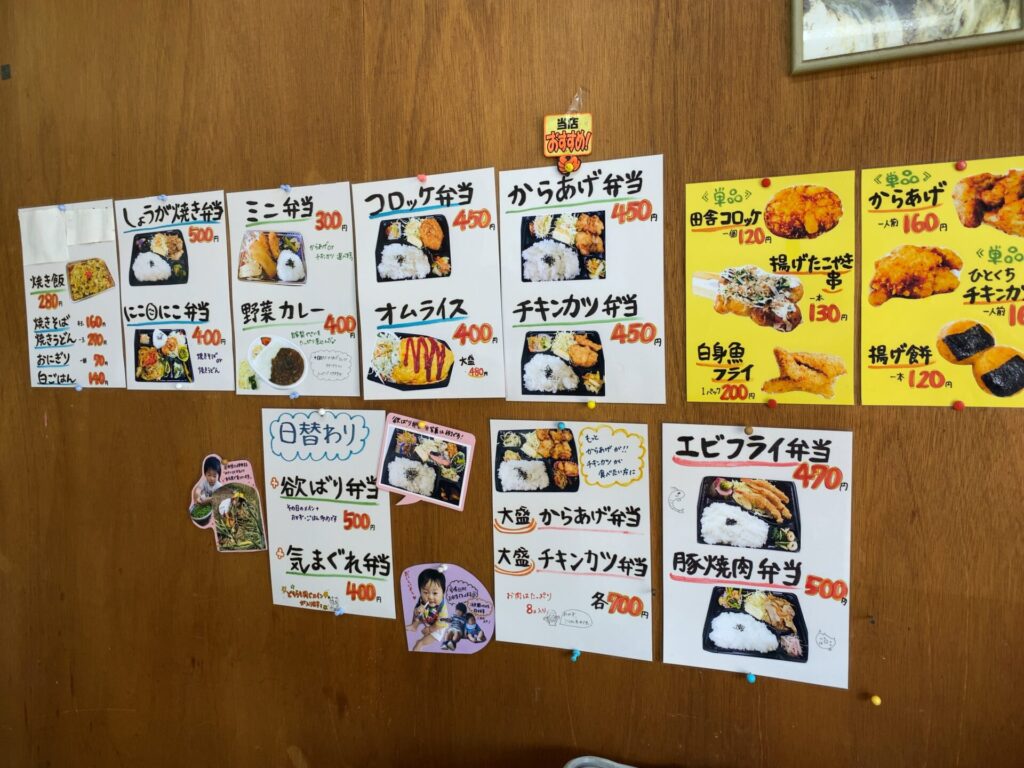 当店
おすすめ!
焼き飯
280円
焼きそば 160円
焼きうどん
おにぎり 70円
白ごはん 140円
しょうが焼き弁当
500円
にこにこ弁当
400円
焼きそば or
焼きうどん
ミニ弁当
300円
からあげ or
チキンカツ 選べます。
野菜カレー
400円
コロッケ弁当
450円
オムライス
400円
大盛
480円
からあげ弁当
450円
チキンカツ弁当
450円
《単品》
田舎コロッケ
一個 120円
揚げたこやき
串
一本 130円
白身魚
フライ
1パック 200円
《単品》
からあげ
一人前 160円
《単品》
ひとくち
チキンカツ
一人前
揚げ餅
一本 120円
日替わり
欲ばり弁当
その日のメイン+
500円
気まぐれ弁当
400円
もっと
からあげが!!
チキンカツが
食べたい方に
大盛 からあげ弁当
大盛 チキンカツ弁当
お肉はたっぷり
8コ入り
各700円
エビフライ弁当
470円
豚焼肉弁当
500円